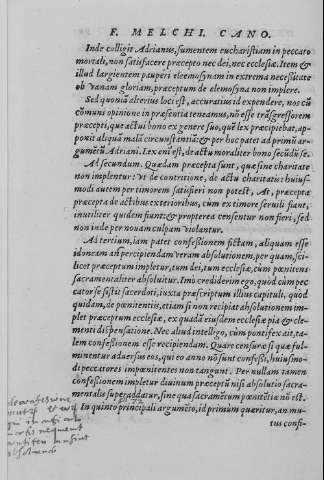 F. MELCHI. CANO.
Inde colligit Adrianus, sumentem eucharistiam in peccato
mortali, non satisfacere præcepto nec dei, nec ecclesiæ. Item &
illud largientem pauperi eleemosynam in extrema necessitate
ob vanam gloriam, præceptum de elemosyna non implere.
Sed quoniã alterius loci est, accuratius id expendere, nos cũ
cõmuni opinione in præsentia teneamus, nõ esse trãsgressorem
præcepti, que actui bono ex genere suo, quẽ lex præcipiebat, ap-
ponit aliquã malã circũstantiã: & per hoc patet ad primũ ar-
gumẽtũ Adriani. Lex eni est, de actu moraliter bono secũdũ se.
Ad secundum. Quædam præcepta sunt, quæ sine charitate
non implentur: vt de contritione, de actu charitatis: huius-
modi autem per timorem satisfieri non potest, At, præcepta
præcepta de actibus exterioribus, cùm ex timore seruili fiant,
inutiliter quidem fiunt: & propterea censentur non fieri, sed
non inde per nouam culpam violantur.
Ad tertium, iam patet confessionem fictam, aliquam esse
idoneam ad percipiendam veram absolutionem, per quam, sci-
licet præceptum impletur, tum dei, tum ecclesiæ, cùm pœnitens
sacramentaliter absoluitur. Imò crediderim ego, quòd cum pec
cator se sistit sacerdoti, iuxta præscriptum illius capituli, quod
quidam, de pœnitentiis, etiam si non recipiat absolutionem im
plet præceptum ecclesiæ, ex quadã eiusdem ecclesiæ pia & cle-
menti dispensatione. Nec aliud intelligo, cùm pontifex ait, ta-
lem confessionem esse recipiendam. Quare censuræ si quæ ful-
minentur aduersus eos, qui eo anno nõ sunt confessi, huiusmo-
di peccatores impœnitentes non tangunt. Per nullam tamen
confessionem impletur diuinum præceptũ nisi absolutio sacra-
mentalis superaddatur, sine qua sacramẽtum pœnitẽtiæ nõ est.
In quinto principali argumẽto, id primùm quæritur, an mu-
tus confi-